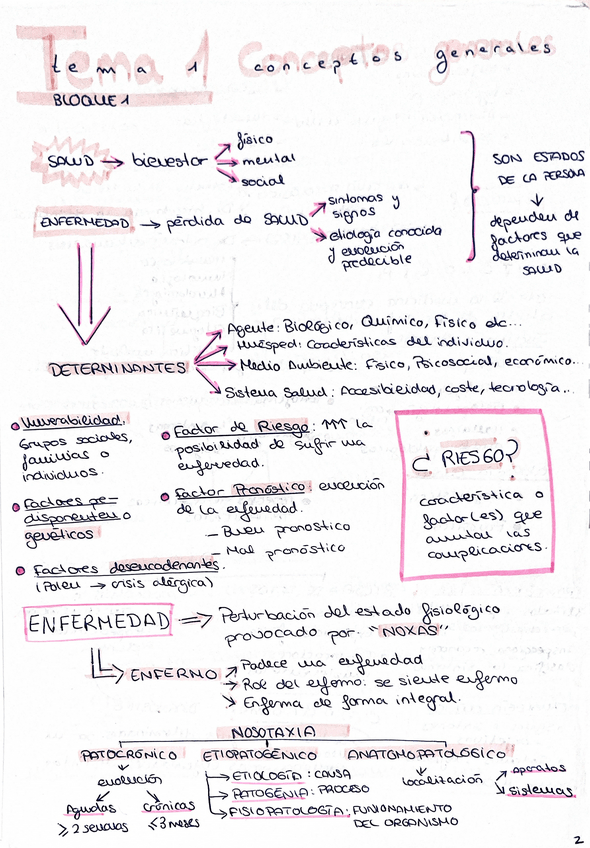 Tema 1 Conceptos generales
tema 1 conceptos generales
BLOQUE 1
SALUD → bienestar
físico
mental
social
ENFERMEDAD → pérdida de SALUD
sintomas y
signos
etiología conocida
y evolución
predecible
SON ESTADOS
DE LA PERSONA
↓
dependen de
factores que
determinan la
SALUD
DETERMINANTES
Agente: Biológico, Químico, Físico etc...
Huésped: Características del individuo.
Medio Ambiente: Físico, Psicosocial, económico...
Sistema Salud: Accesibilidad, coste, tecnología...
Vulnerabilidad.
Grupos sociales,
familias o
individuos.
Factores pre-
disponentes o
genéticos
Factores desencadenantes.
(Polen → crisis alérgica)
Factor de Riesgo: ↑↑↑ la
posibilidad de sufrir una
enfermedad.
Factor Pronóstico: evolución
de la enfermedad.
- Buen pronostico
- Mal pronóstico
¿ RIESGO?
característica o
factor(es) que
aumentan las
complicaciones.
ENFERMEDAD ⇒ Perturbación del estado fisiológico
provocado por "NOXAS"
ENFERMO
Padece una enfermedad
Rol del enfermo: se siente enfermo
Enferma de forma integral.
NOSOTAXIA
PATOCRÓNICO
↓
evolución
Agudas
≥ 2 semanas
crónicas
≤ 3 meses
ETIOPATOGÉNICO
ETIOLOGÍA: CAUSA
PATOGENIA: PROCESO
FISIOPATOLOGÍA: FUNCIONAMIENTO
DEL ORGANISMO
ANATOMOPATOLÓGICO
↓
localización
Aparatos
Sistemas
2